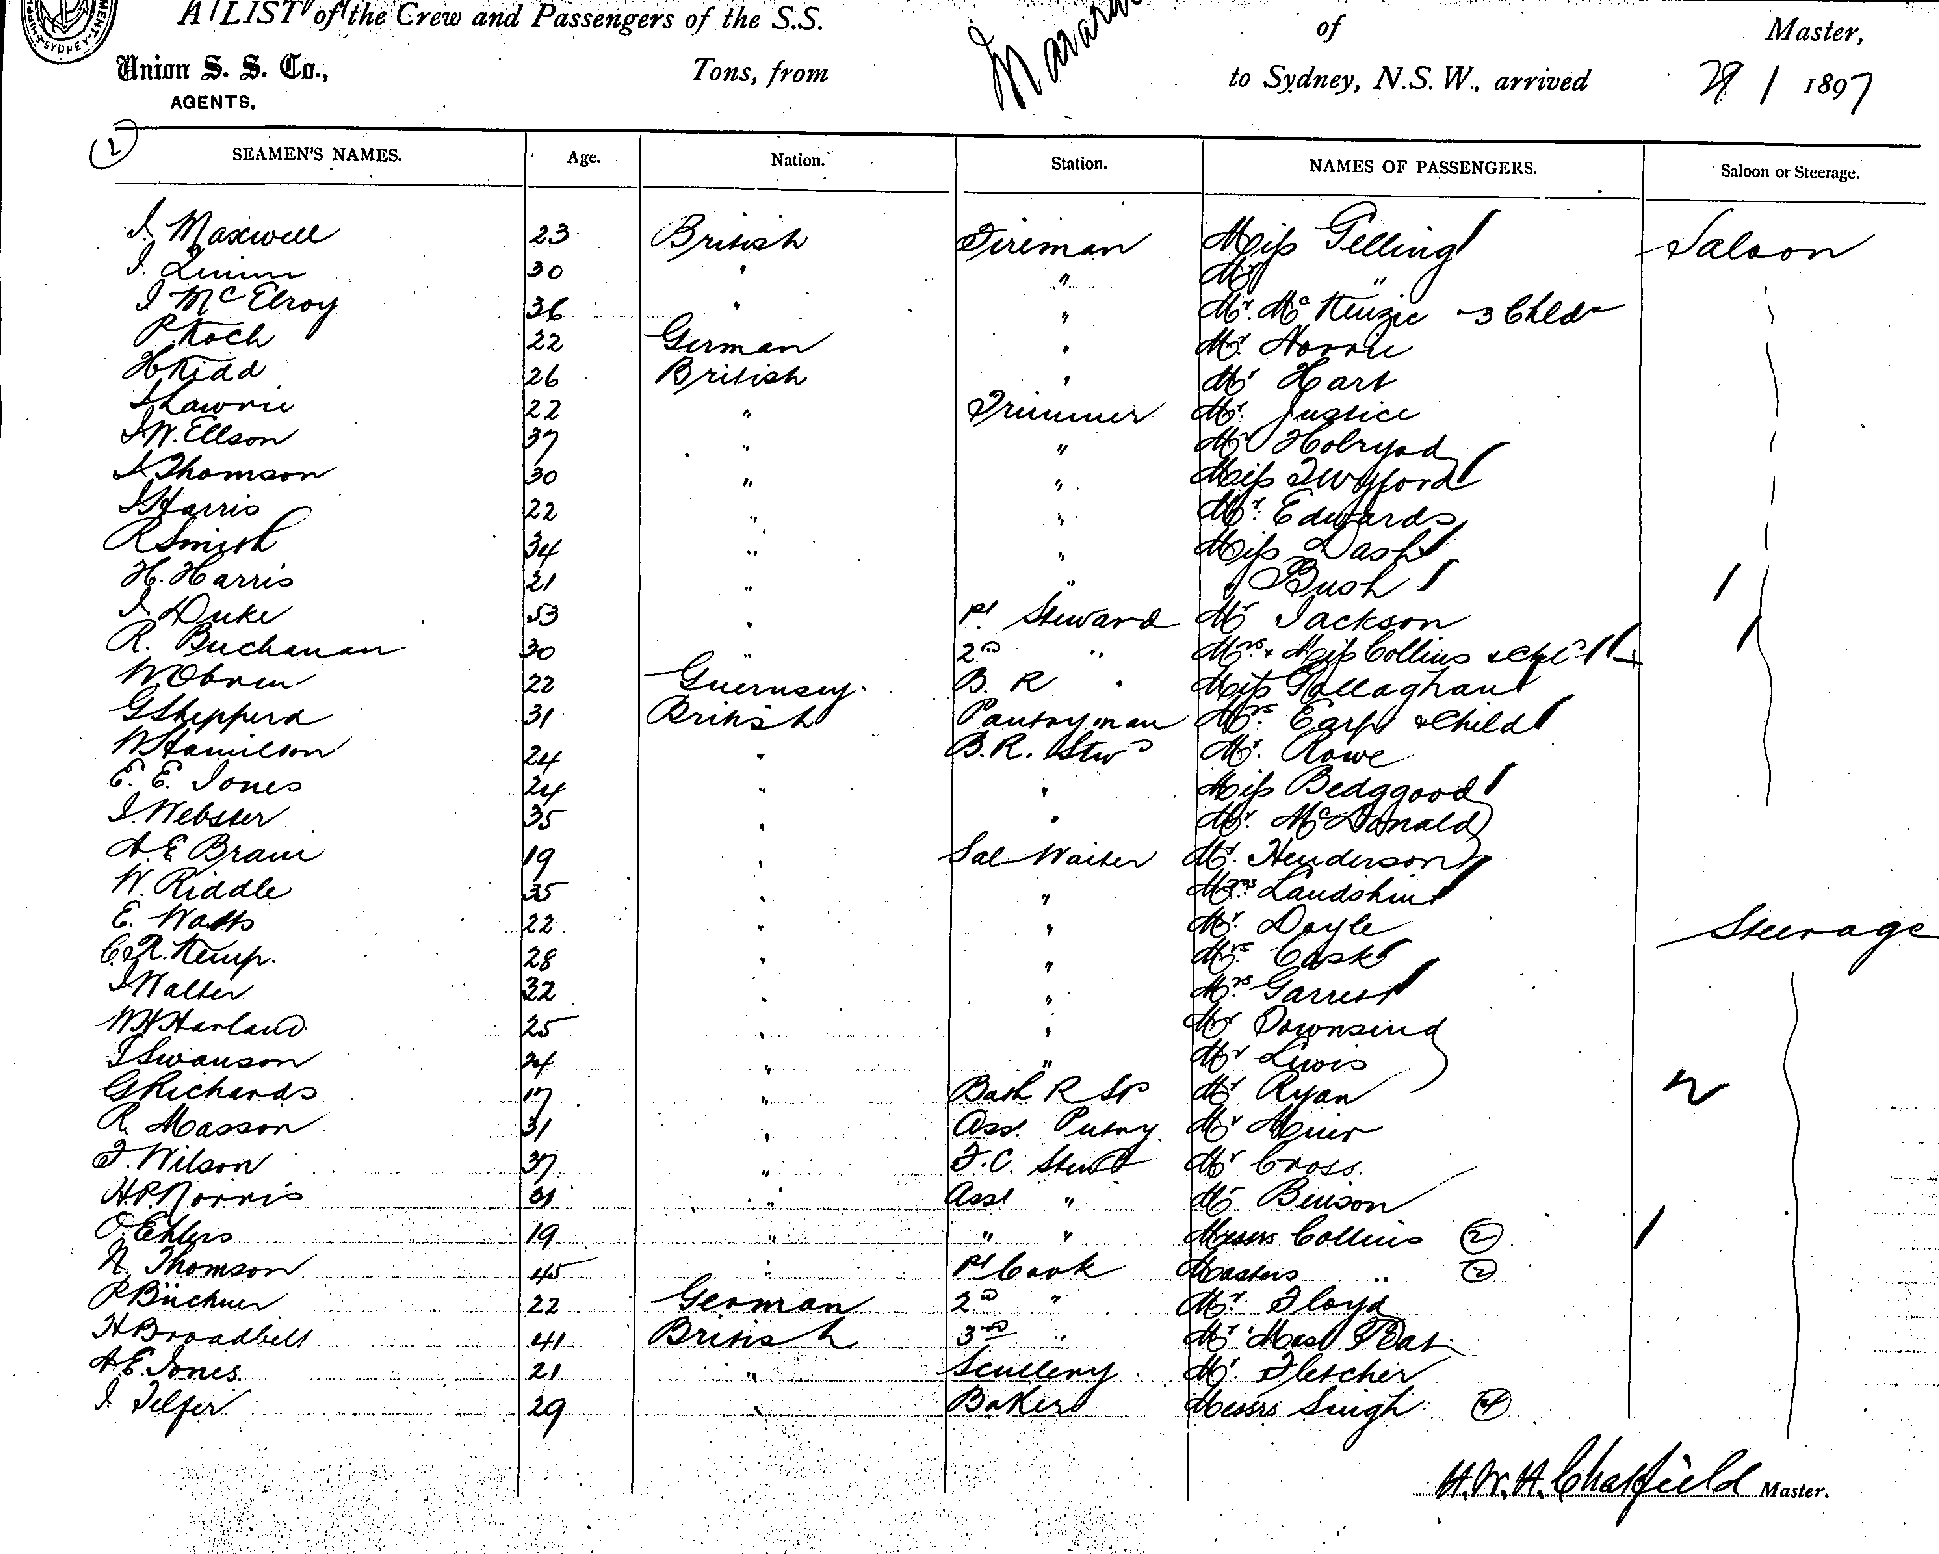 A LIST of the Crew and Passengers of the S.S. of Master,
Union S. S. Co., Tons, from to Sydney, N.S.W., arrived 29 / 1 1897
AGENTS.
2
SEAMEN'S NAMES. Age. Nation. Station. NAMES OF PASSENGERS. Saloon or Steerage.
J. Maxwell 23 British Fireman Miss Gelling Saloon
J. 30 " " Mr "
J McElroy 36 " " Mr. McKenzie 3 Child
P. Koch 22 German " Mr. Norrie
H Kidd 26 British " Mr Hart
J Lawrie 22 " Trimmer Mr. Justice
J W. Ellson 37 " " Mr Holryod
J. Thomson 30 " " Miss Twyford
J Harris 22 " " Mr. Edwards
R Smith 34 " " Miss Dash
H. Harris 21 " " " Bush
J. Duke 53 " 1st Steward Mr Jackson
R. Buchanan 30 " 2nd " Mrs & Miss Collins
W Obrien 22 Guernsey B. R " Miss Gallaghan
G Shepperd 31 British Pantryman Mrs. Earp & Child
W Hamilton 24 " B.R. Stwd Mr. Rowe
E. E. Jones 24 " " Miss Bedggood
J. Webster 35 " " Mr. McDonald
A. E Brain 19 " Sal Waiter Mr. Henderson
W. Riddle 35 " " Mrs
E. Watts 22 " " Mr Doyle Steerage
C. R. Kemp. 28 " " Mrs Cask
J Walter 32 " " Mrs Garrett
W H Harland 25 " " Mr Downsend
J Swanson 24 " " Mr Lewis
G Richards 17 " Bath R St Mr Ryan
R. Masson 31 " Asst. Pntry Mr Muir
J. Wilson 37 " F.C. Stwd Mr Cross.
H. P. Norris 31 " Asst " Mr Benson
O. Ehlers 19 " " " Messrs Collins 2
N. Thomson 45 " 1st Cook Masters " 2
P Büchner 22 German 2nd " Mr. Floyd
H Broadbelt 41 British 3rd " Mr
A E. Jones 21 " Scullery Mr Fletcher
J. Telfer 29 " Baker Messrs Singh 4
H. W. H. Chatfield Master.